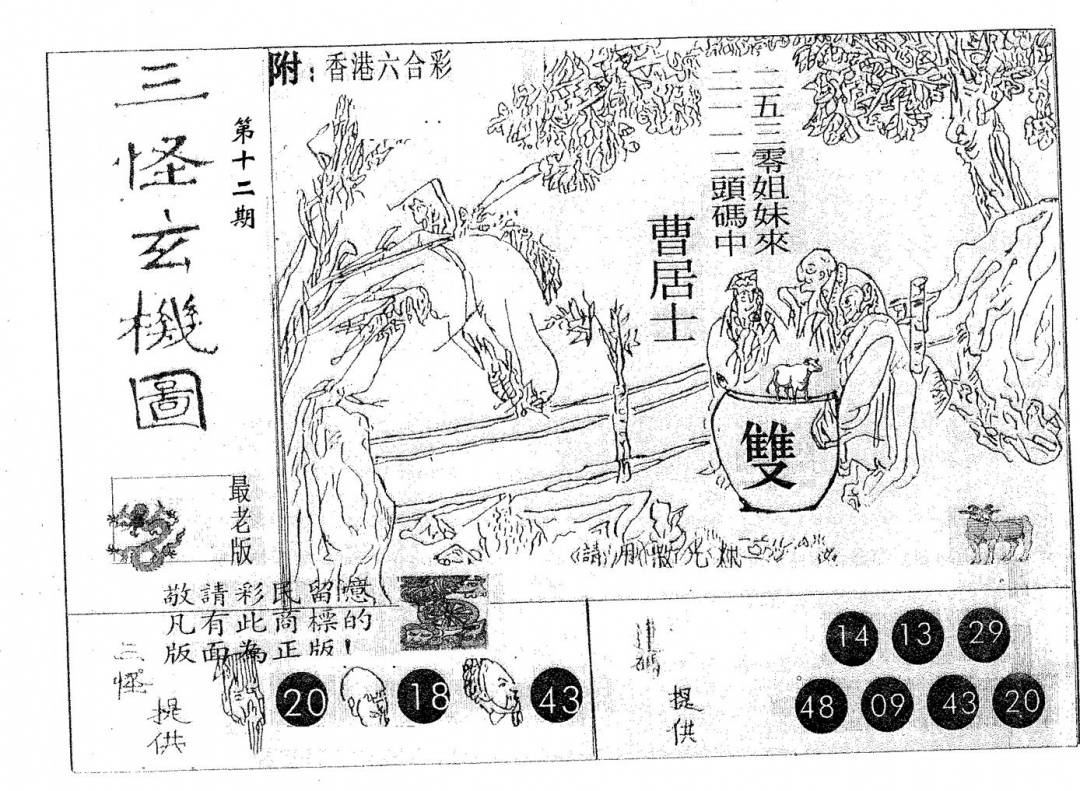 三怪玄機圖
第十二期
附：香港六合彩
二五三零姐妹來
二一一二頭碼中
曹居士
雙
最老版
敬請彩民留憶
凡有此商標的
版面為正版！
三怪
提供
20 18 43
提供
14 13 29
48 09 43 20